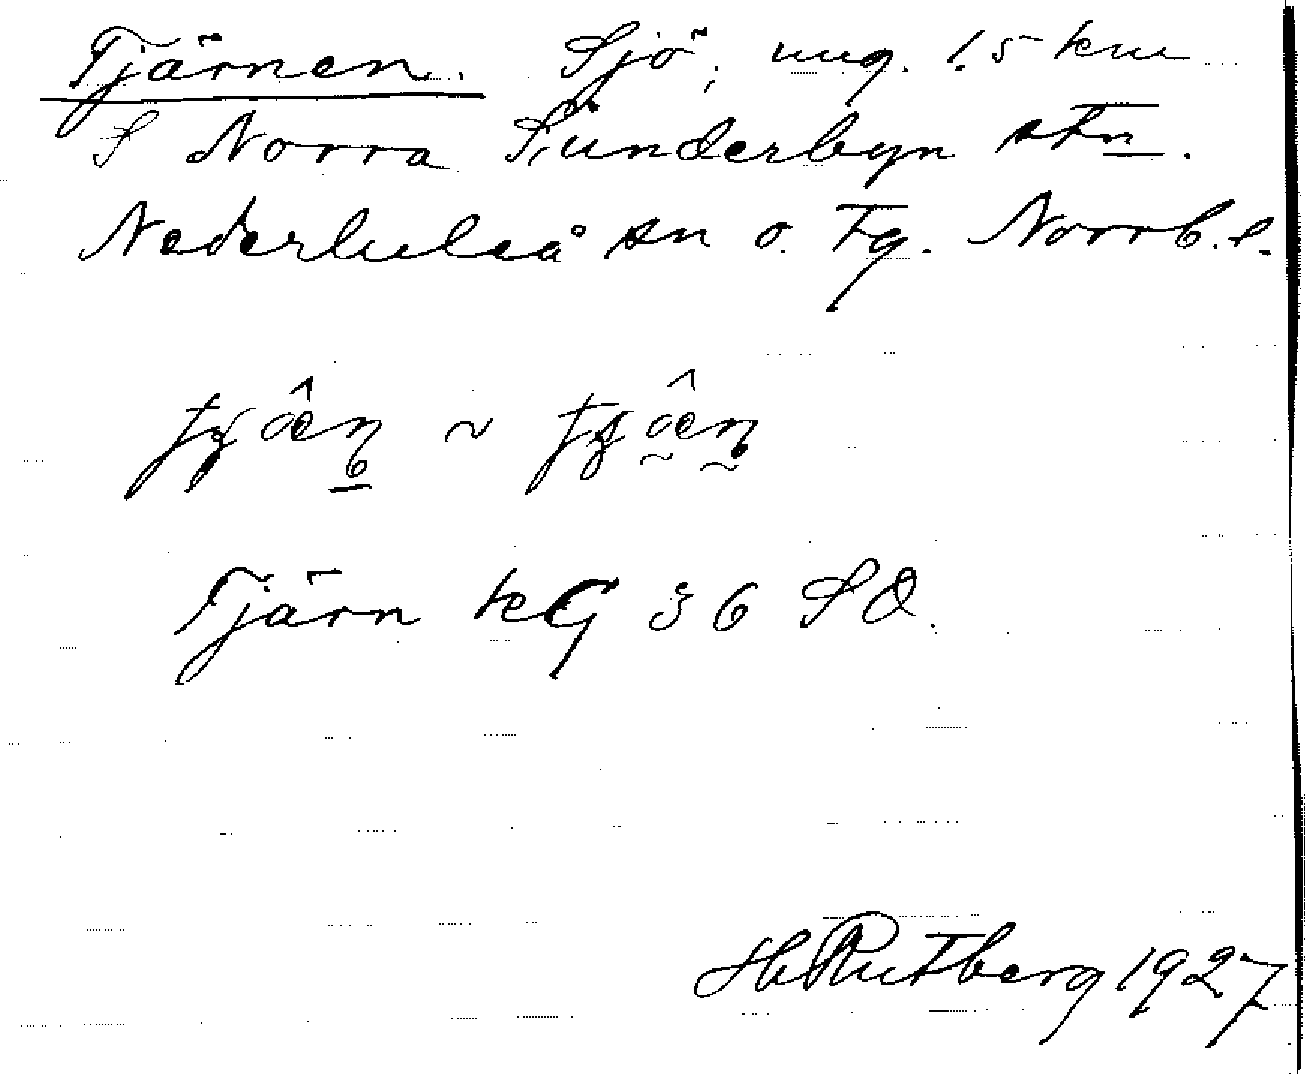 Tjärnen. Sjö, ung. 1.5 km
S Norra Sunderbyn stn.
Nederluleå sn o. tg. Norrb. l.
Tjärn kG 36 SO.
H Rutberg 1927